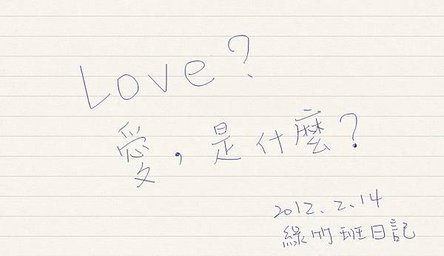 Love?
愛，是什麼?
2012.2.14
綠竹班日記